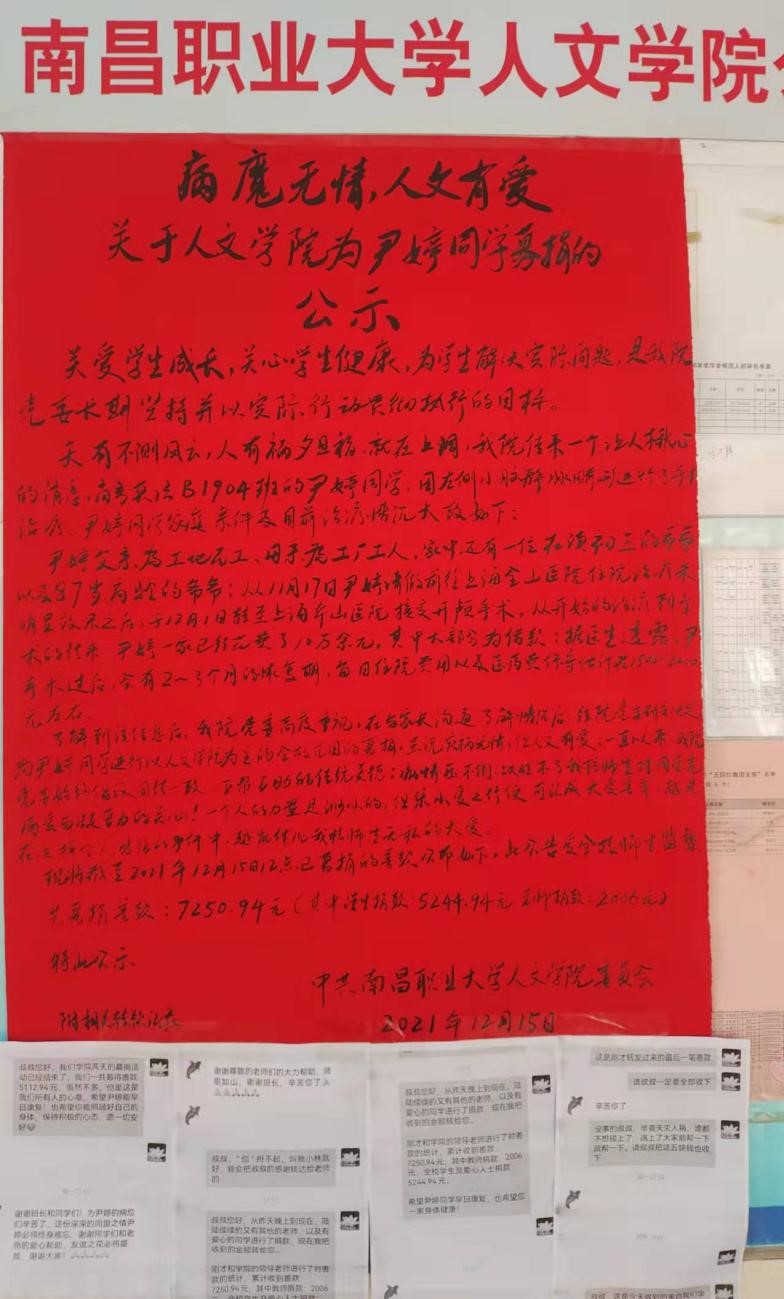 南昌职业大学人文学院
病魔无情，人文有爱
关于人文学院为尹婷同学募捐的
公示
关爱学生成长，关心学生健康，为学生解决实际问题，是我院
党委长期坚持并以实际行动贯彻执行的目标。
天有不测风云，人有祸夕旦福，就在上周，我院传来一个让人揪心
的消息，B1904班的尹婷同学，因左侧小脑进行了手术
治疗。尹婷同学家庭条件及目前治疗情况大致如下：
尹婷父亲为工地瓦工、母亲为工厂工人，家中还有一位在读初三的
以及87岁高龄的爷爷；从11月17日尹婷请假前往上海金山医院住院治疗未
明显效果之后，于12月1日转至上海华山医院接受开颅手术，从开始的治疗到手
术的结束，尹婷一家已经花费了10万余元，其中大部分为借款；据医生透露，尹
手术过后，会有2～3个月的恢复期，每日住院费用以及医药费等估计在1500-2000
元左右。
了解到该信息后，我院党委高度重视，在与家长沟通了解情况后，经院党委研究决定
为尹婷同学进行以人文学院为主的募捐，虽说病无情，但人文有爱，一直以来我院
党委始终倡议团结一致、互帮互助的传统美德；病情压不倒、我校师生对同学
病爱与凝聚力的关心！一个人的力量是渺小的，但集小爱之行便可汇成大爱
在的事件中，越能体现我校师生无私的大爱。
现将截至2021年12月15日12点已募捐的善款公布如下，此公告受全校师生监督
共募捐善款：7250.94元（其中学生捐款：5244.94元 老师捐款：2006元）
特此公示
中共南昌职业大学人文学院委员会
2021年12月15日
附相关转款记录
叔叔您好，我们学院两天的募捐活
动已经结束了，我们一共筹得善款
5112.94元，虽然不多，但是这是
我们所有人的心意，希望尹婷能早
日康复！也希望你能照顾好自己的
身体，保持积极的心态，愿一切安
好
谢谢班长和同学们！为尹婷的病您
们辛苦了，这份深深的同窗之情尹
婷必将终身难忘，谢谢同学们和老
师的爱心帮助，友谊之花必将盛
放，谢谢大家！
谢谢尊敬的老师们的大力帮助，师
恩如山，谢谢班长，辛苦您了
叔叔，“您”担不起，叫我小林就
好，我会把叔叔的感谢转达给老师
的
叔叔您好，从昨天晚上到现在，陆
陆续续的又有其他的老师，以及有
爱心的同学进行了捐款，现在我把
收到的金额转给您。
刚才和学院的领导老师进行了对善
款的统计，累计收到善款：
7250.94元，其中教师捐款，2006
元，全校学生及爱心人士捐款：
叔叔您好，从昨天晚上到现在，陆
陆续续的又有其他的老师，以及有
爱心的同学进行了捐款，现在我把
收到的金额转给您。
刚才和学院的领导老师进行了对善
款的统计，累计收到善款：
7250.94元，其中教师捐款，2006
元，全校学生及爱心人士捐款：
5244.94元。
希望尹婷同学早日康复，也希望您
一家身体健康！
这是刚才转发过来的最后一笔善款
请叔叔一定要全部收下
辛苦你了
没事的叔叔，毕竟天灾人祸，谁都
不想碰上了，遇上了大家能帮一下
就帮一下。请叔叔把这五块钱也收
下